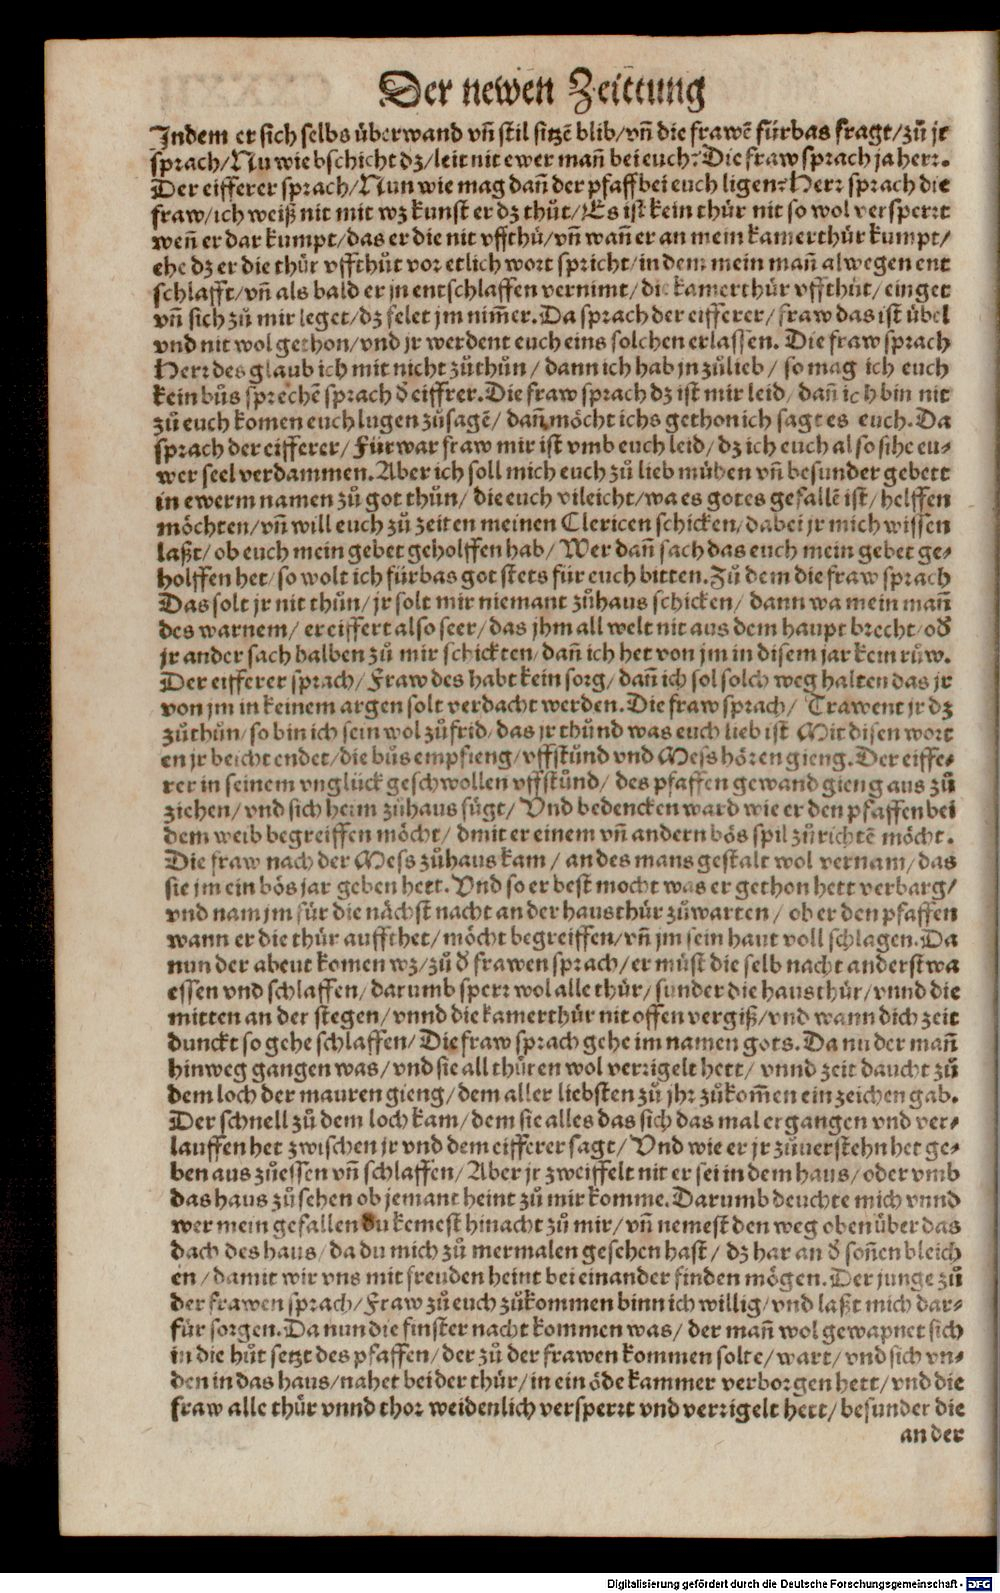 Der newen Zeittung
Indem er sich selbs überwand vñ stil sitzẽ blib/vñ die frawẽ fürbas fragt/zů jr
sprach/Nu wie bschicht dz/leit nit ewer mañ bei euch? Die fraw sprach ja herr.
Der eifferer sprach/Nun wie mag dañ der pfaff bei euch ligen? Herr sprach die
fraw/ich weiß nit mit wz kunst er dz thůt/Es ist kein thür nit so wol versperrt
weñ er dar kumpt/das er die nit vffthů/vñ wañ er an mein kamerthür kumpt/
ehe dz er die thür vffthůt vor etlich wort spricht/in dem mein mañ alwegen ent
schlafft/vñ als bald er jn entschlaffen vernimt/die kamerthür vffthůt/ein get
vñ sich zů mir leget/dz felet jm nim̃er. Da sprach der eifferer/fraw das ist übel
vnd nit wol gethon/vnd jr werdent euch eins solchen erlassen. Die fraw sprach
Herr des glaub ich mit nicht zůthůn/dann ich hab jn zůlieb/so mag ich euch
kein bůs sprechẽ sprach ď eiffrer. Die fraw sprach dz ist mir leid/dañ ich bin nit
zů euch komen euch lugen zůsagẽ/dañ möcht ichs gethon ich sagt es euch. Da
sprach der eifferer/Fürwar fraw mir ist vmb euch leid/dz ich euch also sihe eu-
wer seel verdammen. Aber ich soll mich euch zů lieb můhen vñ besunder gebett
in ewerm namen zů got thůn/die euch vileicht/wa es gotes gefallẽ ist/helffen
möchten/vñ will euch zů zeiten meinen Clericen schicken/dabei jr mich wissen
laßt/ob euch mein gebet geholffen hab/Wer dañ sach das euch mein gebet ge-
holffen het/so wolt ich fürbas got stets für euch bitten. Zů dem die fraw sprach
Das solt jr nit thůn/jr solt mir niemant zůhaus schicken/dann wa mein mañ
des warnem/er eiffert also seer/das jhm all welt nit aus dem haupt brecht/oď
jr ander sach halben zů mir schickten/dañ ich het von jm in disem jar kein růw.
Der eifferer sprach/Fraw des habt kein sorg/dañ ich sol solch weg halten das jr
von jm in keinem argen solt verdacht werden. Die fraw sprach/Trawent jr dz
zůthůn/so bin ich sein wol zůfrid/das jr thů nd was euch lieb ist Mit disen wort
en jr beicht endet/die bůs empfieng/vffstůnd vnd Mess hören gieng. Der eiffe-
rer in seinem vnglück geschwollen vffstůnd/des pfaffen gewand gieng aus zů
ziehen/vnd sich heim zůhaus fůgt/Vnd bedencken ward wie er den pfaffen bei
dem weib begreiffen möcht/dmit er einem vñ andern bös spil zůrichtẽ möcht.
Die fraw nach der Mess zůhaus kam/an des mans gestalt wol vernam/das
sie jm ein bös jar geben hett. Vnd so er best mocht was er gethon hett verbarg/
vnd nam jm für die nächst nacht an der hausthür zůwarten/ob er den pfaffen
wann er die thür auffthet/möcht begreiffen/vñ jm sein haut voll schlagen. Da
nun der abent komen wz/zů ď frawen sprach/er můst die selb nacht anderstwa
essen vnd schlaffen/darumb sperr wol alle thür/sunder die hausthür/vnnd die
mitten an der stegen/vnnd die kamerthür nit offen vergiß/vnd wann dich zeit
dunckt so gehe schlaffen/Die fraw sprach gehe im namen gots. Da nu der mañ
hinweg gangen was/vnd sie all thüren wol verrigelt hett/vnnd zeit daucht zů
dem loch der mauren gieng/dem aller liebsten zů jhr zůkom̃en ein zeichen gab.
Der schnell zů dem loch kam/dem sie alles das sich das mal ergangen vnd ver-
lauffen het zwischen jr vnd dem eifferer sagt/Vnd wie er jr zůuerstehn het ge-
ben aus zůessen vñ schlaffen/Aber jr zweiffelt nit er sei in dem haus/oder vmb
das haus zů sehen ob jemant heint zů mir komme. Darumb deuchte mich vnnd
wer mein gefallen du kemest hinacht zů mir/vñ nemest den weg oben über das
dach des haus/da du mich zů mermalen gesehen hast/dz har an ď soñen bleich
en/damit wir vns mit freuden heint bei einander finden mögen. Der junge zů
der frawen sprach/Fraw zů euch zůkommen binn ich willig/vnd laßt mich dar-
für sorgen. Da nun die finster nacht kommen was/der mañ wol gewapnet sich
in die hůt setzt des pfaffen/der zů der frawen kommen solte/wart/vnd sich vn-
den in das haus/nahet bei der thür/in ein öde kammer verborgen hett/vnd die
fraw alle thür vnnd thor weidenlich versperrt vnd verrigelt hett/besunder die
an der
Digitalisierung gefördert durch die Deutsche Forschungsgemeinschaft - DFG